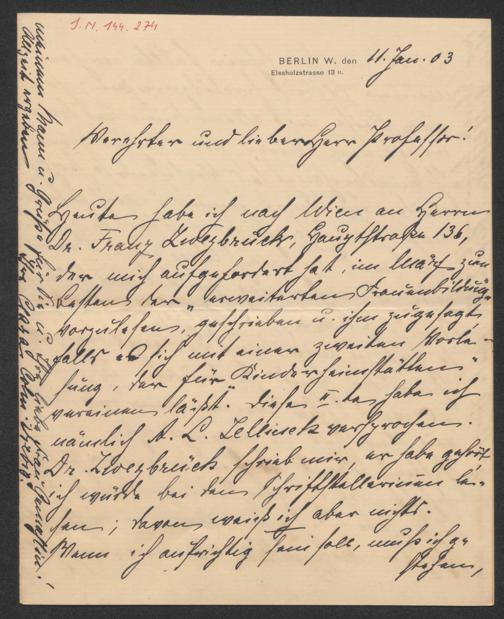 J. N. 144.274
BERLIN W. den 11. Jan. 03
Elssholzstrasse 13 II.
Verehrter und lieber Herr Professor!
Heute habe ich nach Wien an Herrn
Dr. Franz Zweybrück, Hauptstraße 136,
der mich aufgefordert hat, im März zum
Besten der "erweiterten Frauenbildung"
vorzulesen, geschrieben u. ihm zugesagt
falls es sich mit einer zweiten Vorle-
sung, der für "Kinderheimstätten"
vereinen läßt. Diese II. te habe ich
nämlich A. L. Jellinek versprochen.
Dr. Zweybrück schrieb mir, er habe gehört
ich würde bei den Schriftstellerinnen le-
sen; davon weiß ich aber nichts.
Wenn ich aufrichtig sein soll, muß ich ge-
stehen,
meinem Mann u. Grüße für Sie u. Ihre liebe Frau